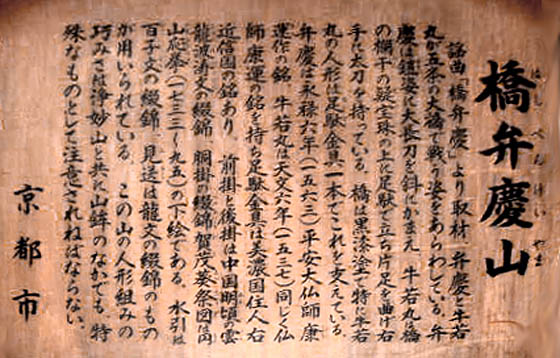 橋弁慶山
はしべんけいやま
謡曲「橋弁慶」より取材、弁慶と牛若
丸が五条の大橋で戦う姿をあらわしている。弁
慶は鎧姿に大長刀を斜にかまえ、牛若丸は橋
の欄干の擬宝珠の上に足駄で立ち片足を曲げ右
手に太刀を持っている。橋は黒漆塗で特に牛若
丸の人形は足駄金具一本でこれを支えている。
弁慶は永禄六年(一五六三)平安大仏師康
運作の銘、牛若丸は天文六年(一五三七)同じく仏
師康運の銘を持ち足駄金具は美濃国住人右
近信国の銘あり、前掛と後掛は中国明頃の雲
龍波濤文の綴錦、胴掛の綴錦賀茂葵祭図は円
山応挙(一七三三〜九五)の下絵である。水引は
百子文の綴錦、見送は龍文の綴錦のもの
が用いられている。この山の人形組みの
巧みさは浄妙山と共に山鉾のなかでも特
殊なものとして注意されねばならない。
京都市